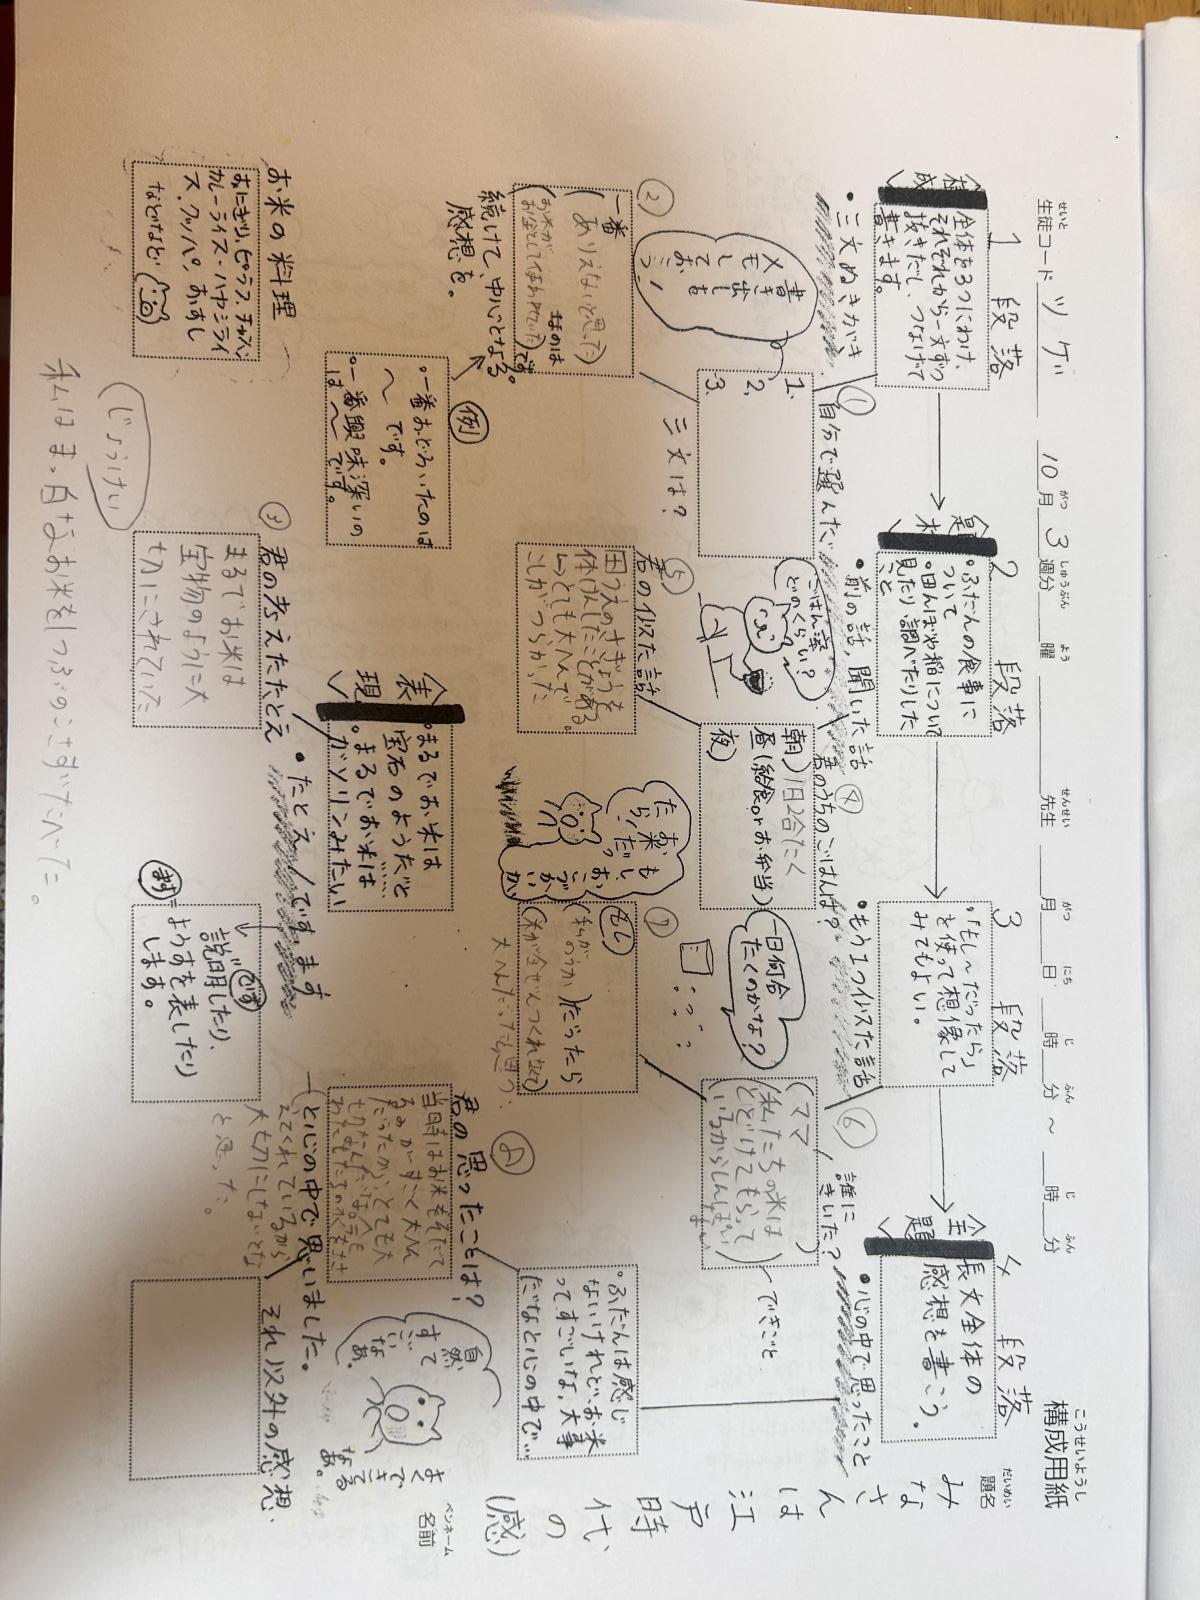 構成用紙
こうせいようし
生徒コード ツゲ 10月3週分 曜 先生 月 日 時 分 ~ 時 分
せいと がつ しゅうぶん よう せんせい がつ にち じ ふん じ ふん
題名
だいめい
みなさんは江戸時代の(感)
ペンネーム
名前
1 段落
構成
全体を3つにわけ、
それぞれから一文ずつ
抜きだし、つなげて
書きます。
・三文ぬきがき
①
自分で選んだ
1.
2.
3.
三文は?
書き出しも
メモして
おこう!
②
一番
(ありえないと思った)
のは
(お米が
お金として使われていた)
です。
続けて、中心となる
感想を。
例
・一番おどろいたのは
~です。
・一番興味深いの
は~です。
お米の料理
おにぎり、ピラフ、チャーハン
カレーライス・ハヤシライ
ス、クッパ、おすし
などなど
2 段落
題材
・ふだんの食事に
ついて
・田んぼや稲について
見たり調べたりした
こと
・前の話、聞いた話
④
君のうちのごはんは?
朝)1日2合たく
昼(給食orお弁当)
夜)
ごはん量
どのくらい?
一日何合
たくのかな?
⑤
君の似た話
田うえのさぎょうを
体けんしたことがある
とても大へんで
こしがつらかった
表現
・まるでお米は
宝石のようだと
・まるでお米は
ガソリンみたい
③
君の考えたたとえ
まるでお米は
宝物のように大
切にされていた
・たとえ
じょうけい
私はまっ白なお米を1つぶのこさずたべた。
3 段落
・「もし~だったら」
を使って想像して
みてもよい。
・もう1つ似た話
⑥
誰に
きいた?
(ママ)
(私たちの米は
とどけてもらって
いるから
できごと
⑦
もし
(私が
のうか)だったら
(米が全ぜんつくれなくて)
大へんだったと思う
もし、
お米だっ
たら!
おこ
です
ます
説明したり、
ようすを表したり
します。
4 段落
主題
長文全体の
感想を書こう。
・心の中で思ったこと
・ふだんは感じ
ないけれどお米
ってすごいな、大事
だなと心の中で…
⑧
君の思ったことは?
当時はお米をそだて
るのがすごく大へん
だったから、とても大
と心の中で思いました。
えてくれているから
大切にしないとな
と思った。
自然
って
すご
いな
あ。
よく
できてる
なあ。
それ以外の感想